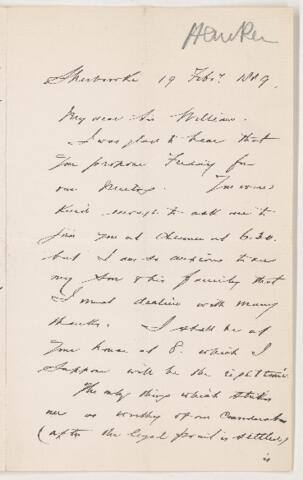 Hawker
Sherbrooke 19 Feby. 1889
My dear Sir William.
I was glad to hear that
you propose Friday for
our meeting. You were
kind enough to ask me to
join you at dinner at 6.30.
but I am so anxious to see
my Son & his family that
I must decline with many
thanks. I shall be at
your house at 8. which I
suppose will be the right time.
The only thing which strikes
me as worthy of our Consideration
(after the legal point is settled)
is